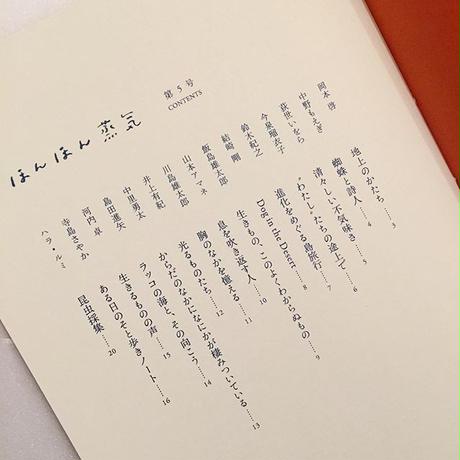 ほんほん蒸気
第5号
CONTENTS
岡本啓 地上のかたち……3
中野もえぎ 蜘蛛と詩人……4
荻世いをら 清々しい不気味さ……5
今泉瑠衣子 “わたし”たちの途上で……6
鈴木紀之 進化をめぐる島旅行……7
結崎剛 Dog in the Desert……8
飯島雄太郎 生きもの、このよくわからぬもの……9
山本アマネ 息を吹き返す人……10
川島雄太郎 胸のなかを憶える……11
井上有紀 光るものたち……12
中里勇太 からだのなかになにかが棲みついている……13
島田進矢 ラッコの海と、その向こう……14
河内卓 生きるものの声……15
寺島さやか ある日のそと歩きノート……16
ハラ・ルミ 昆虫採集……20